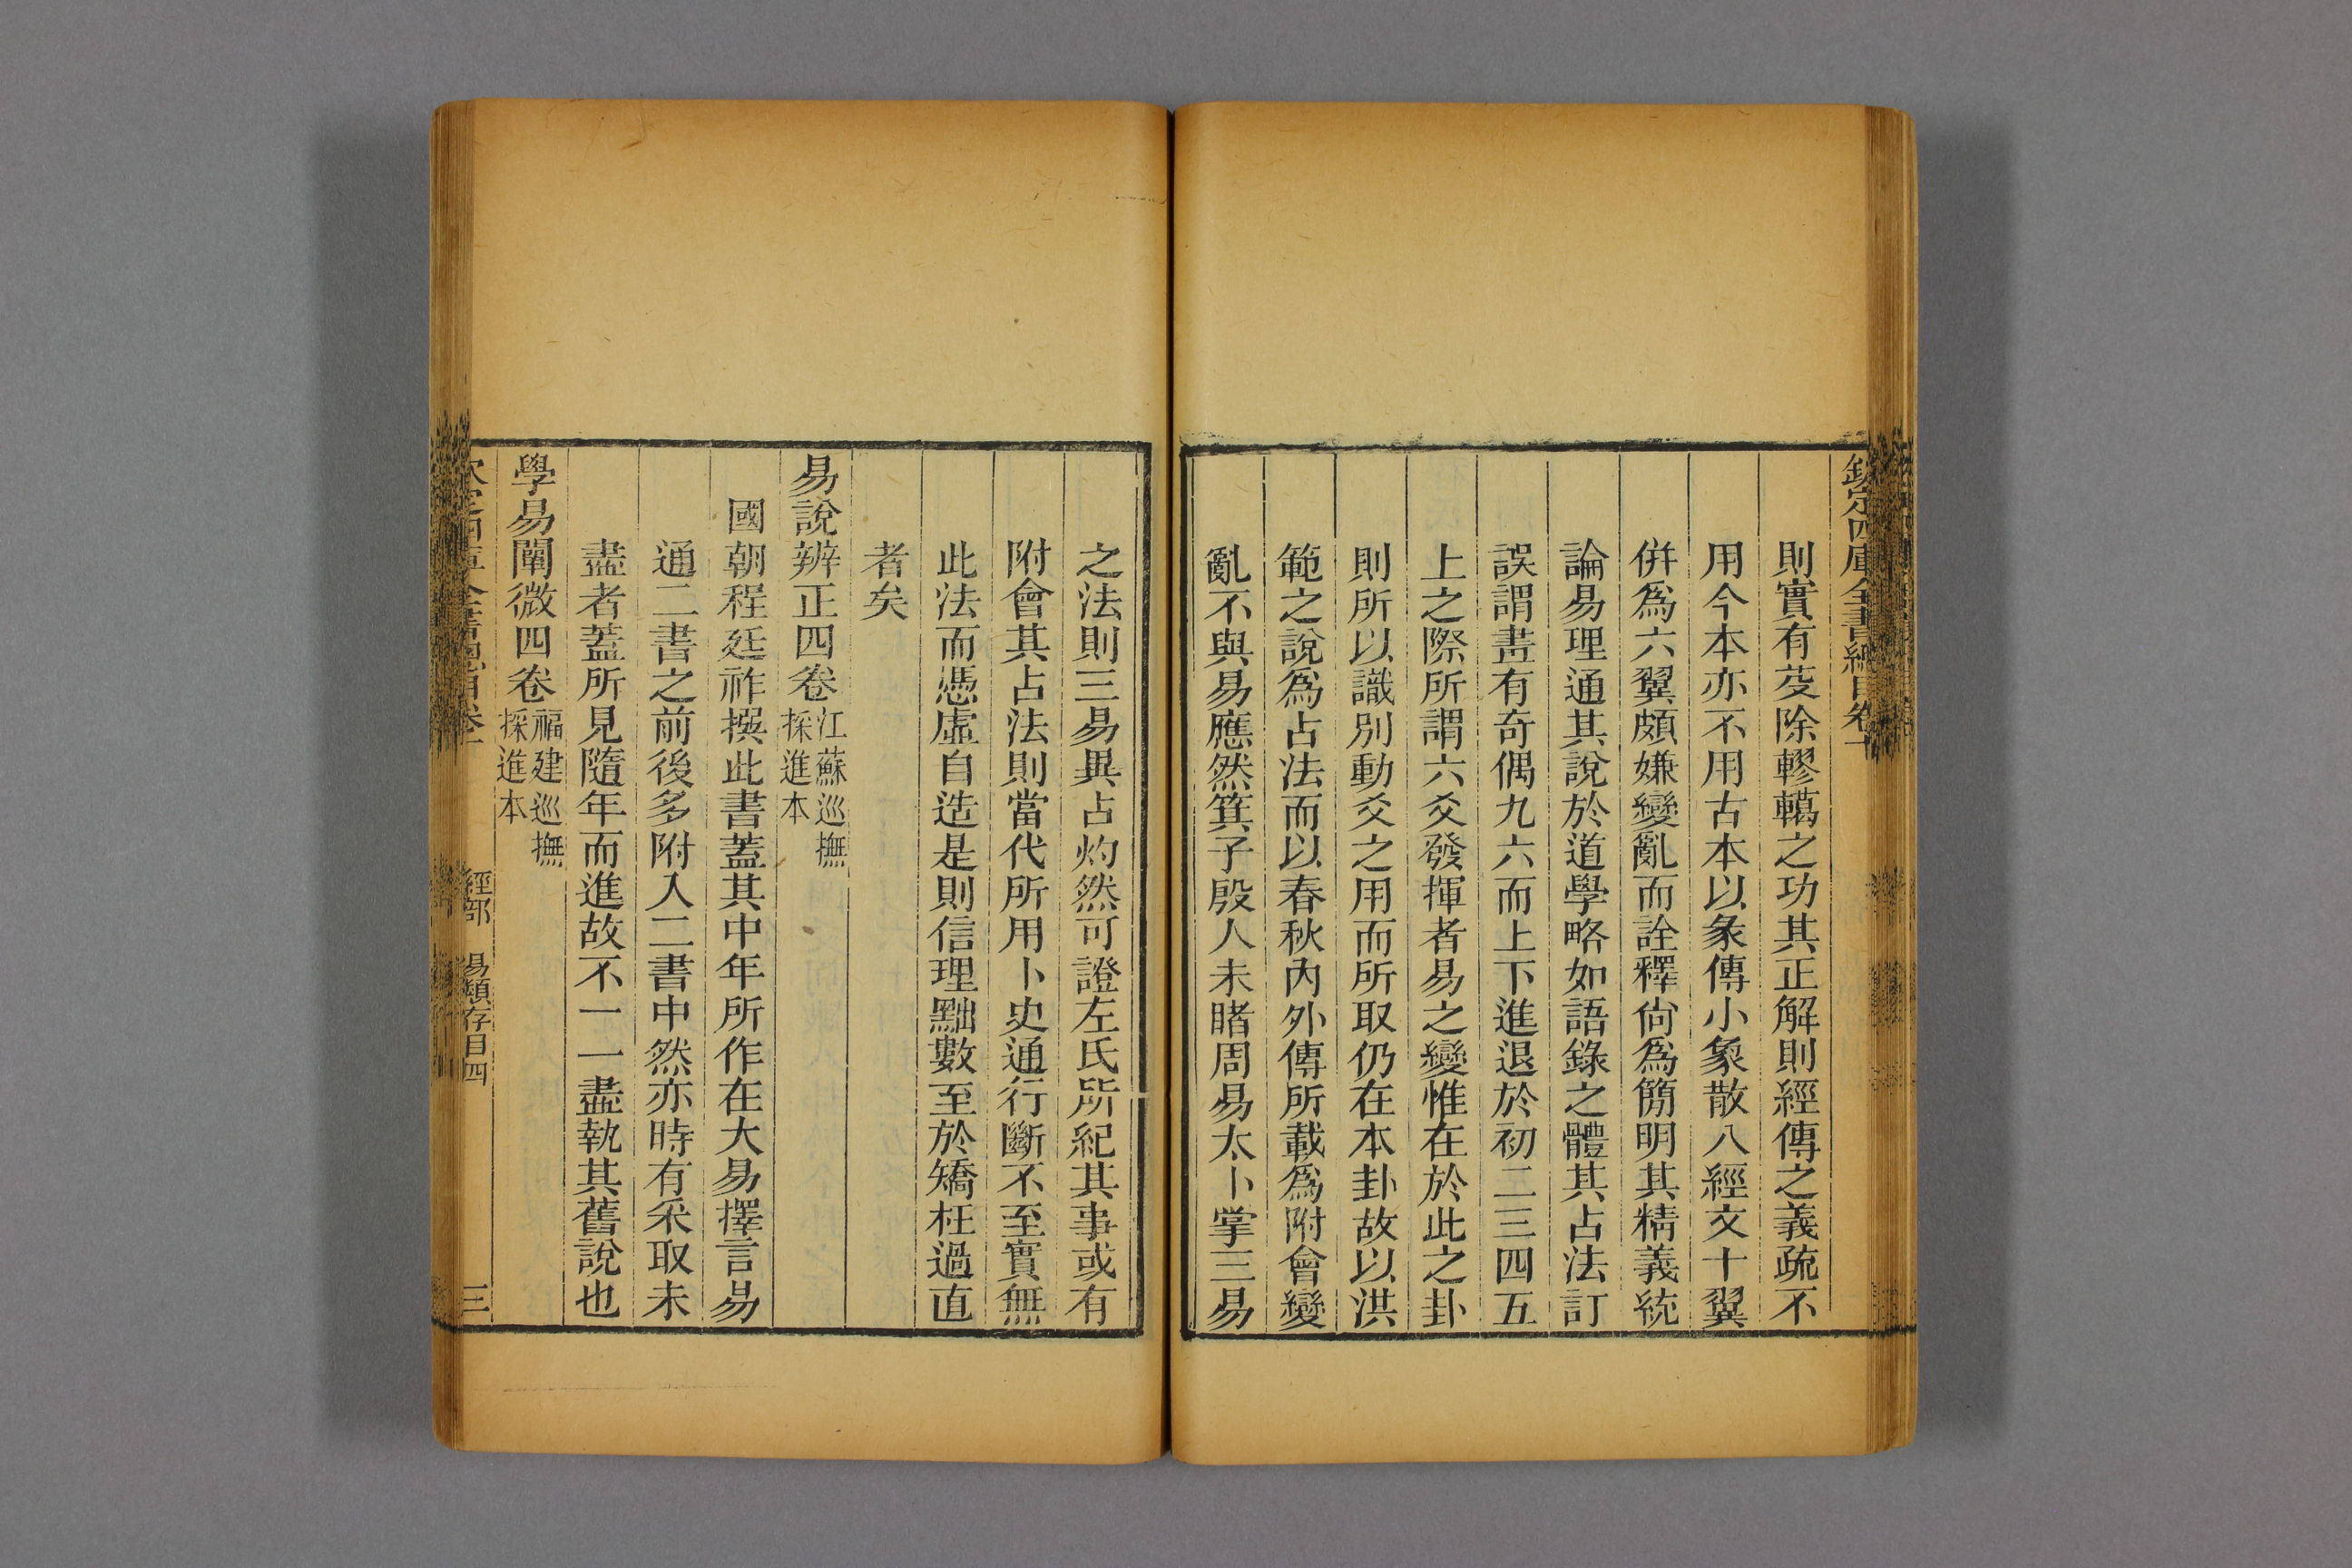 欽定四庫全書總目卷十
則實有芟除轇轕之功其正解則經傳之義疏不
用今本亦不用古本以彖傳小象散八經文十翼
併爲六翼頗嫌變亂而詮釋尙爲簡明其精義統
論易理通其說於道學略如語錄之體其占法訂
誤謂晝有奇偶九六而上下進退於初二三四五
上之際所謂六爻發揮者易之變惟在於此之卦
則所以識別動爻之用而所取仍在本卦故以洪
範之說爲占法而以春秋內外傳所載爲附會變
亂不與易應然箕子殷人未睹周易太卜掌三易
之法則三易異占灼然可證左氏所紀其事或有
附會其占法則當代所用卜史通行斷不至實無
此法而憑虛自造是則信理黜數至於矯枉過直
者矣
易說辨正四卷
江蘇巡撫
採進本
國朝程廷祚撰此書蓋其中年所作在大易擇言易
通二書之前後多附入二書中然亦時有采取未
盡者蓋所見隨年而進故不一一盡執其舊說也
學易闡微四卷
福建巡撫
採進本
經部 易類存目四
三